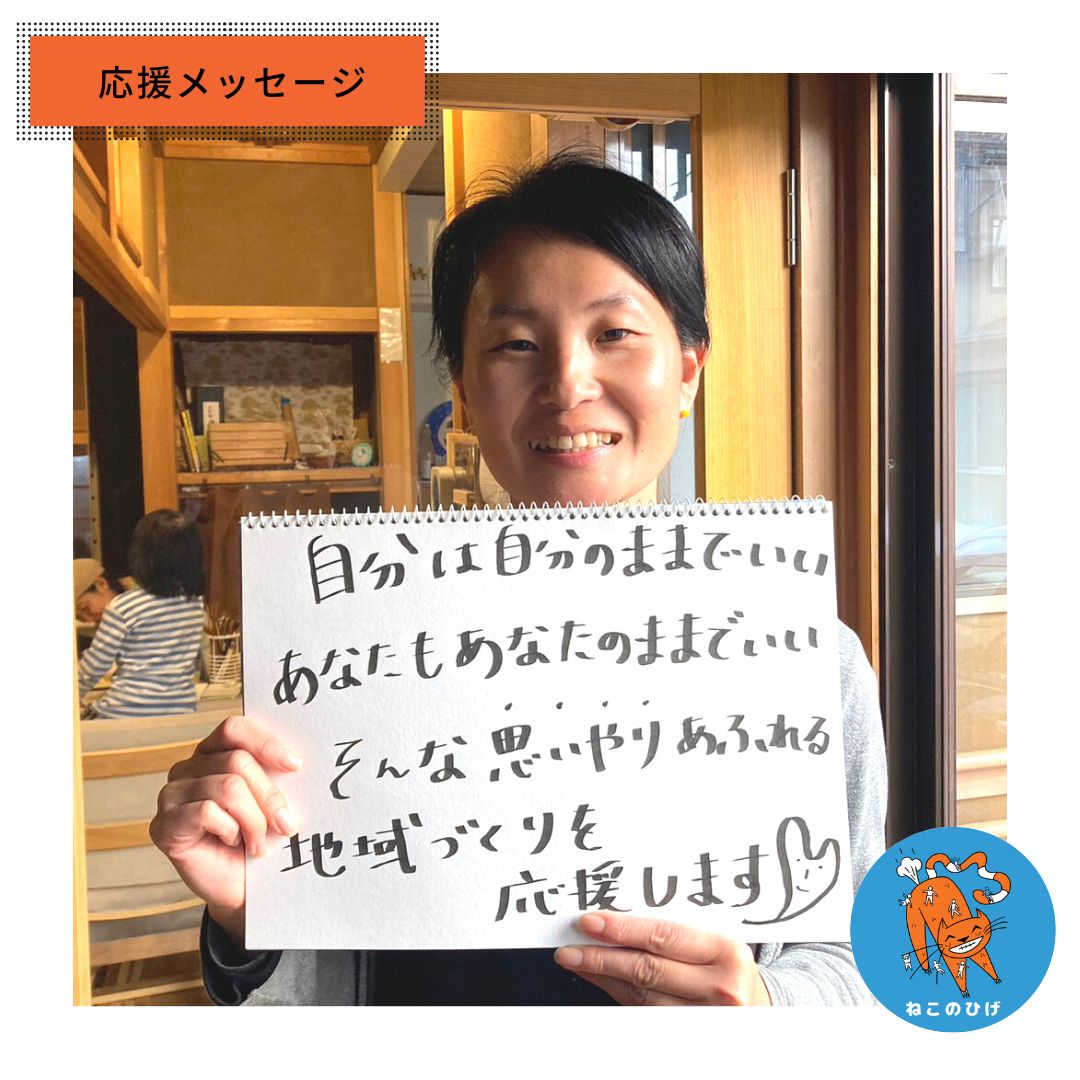 応援メッセージ
自分は自分のままでいい
あなたもあなたのままでいい
そんな思いやりあふれる
地域づくりを
応援します
ねこのひげ